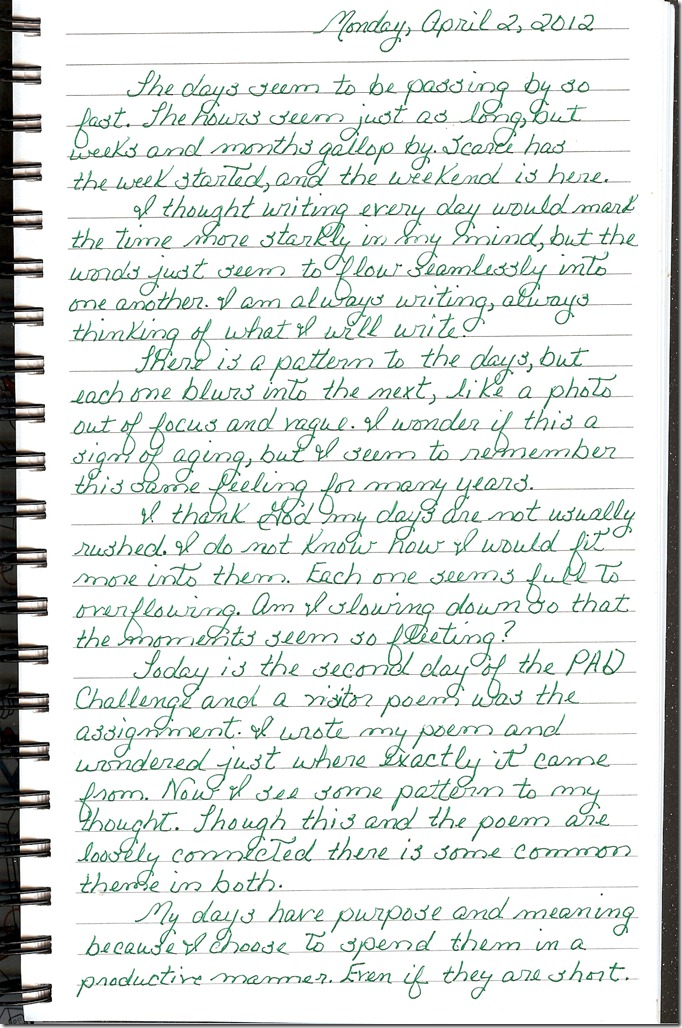 Monday, April 2, 2012
The days seem to be passing by so
fast. The hours seem just as long, but
weeks and months gallop by. Scarce has
the week started, and the weekend is here.
I thought writing every day would mark
the time more starkly in my mind, but the
words just seem to flow seamlessly into
one another. I am always writing, always
thinking of what I will write.
There is a pattern to the days, but
each one blurs into the next, like a photo
out of focus and vague. I wonder if this a
sign of aging, but I seem to remember
this same feeling for many years.
I thank God my days are not usually
rushed. I do not know how I would fit
more into them. Each one seems full to
overflowing. Am I slowing down so that
the moments seem so fleeting?
Today is the second day of the PAD
Challenge and a visitor poem was the
assignment. I wrote my poem and
wondered just where exactly it came
from. Now I see some pattern to my
thought. Though this and the poem are
loosely connected there is some common
theme in both.
My days have purpose and meaning
because I choose to spend them in a
productive manner. Even if they are short.